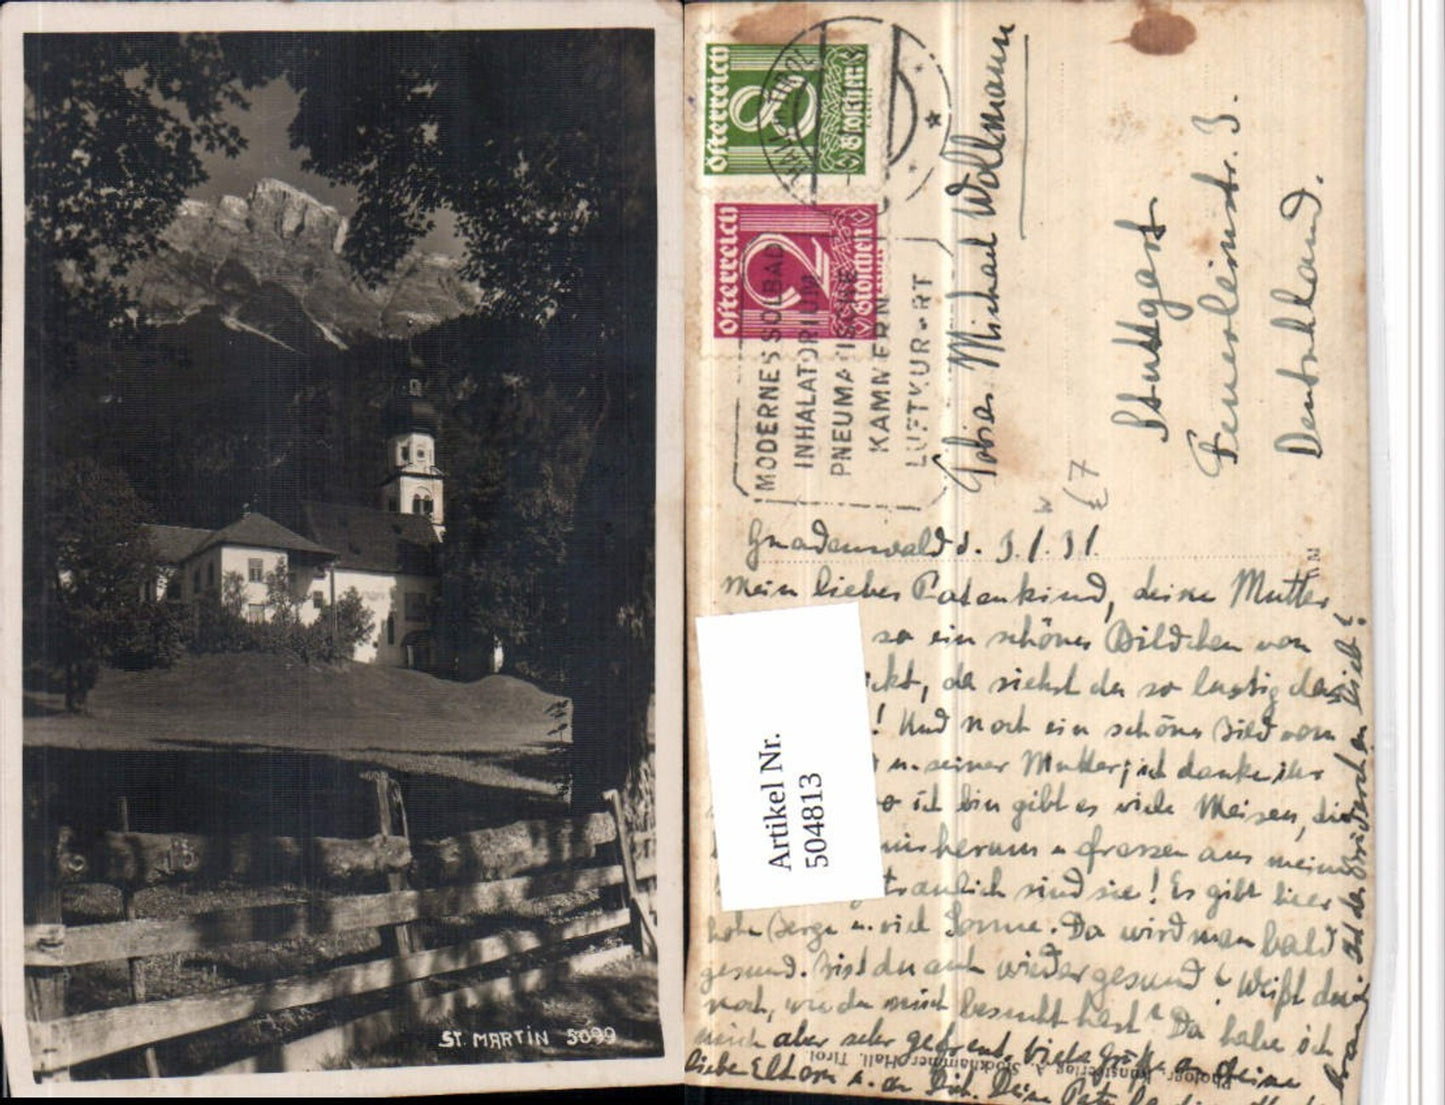 ST. MARTIN 5099
Österreich
8
Groschen
Österreich
12
Groschen
MODERNES SOLBAD
INHALATORIUM
PNEUMATISCHE
KAMMERN
LUFTKURORT
Tobias Michael Wollmann
Stuttgart
Feuerleinstr. 3.
Deutschland.
Artikel Nr.
504813
Gnadenwald d. 3.1.31.
Mein lieber Patenkind, deine Mutter
so ein schönes Bildchen von
ckt, da siehst du so lustig
! Und noch ein schönes Bild vom
u. seiner Mutter; ich danke ihr
wo ich bin gibt es viele Meisen, die
umherum u. fressen aus meiner
traulich sind sie! Es gibt hier
hohe Berge u. viel Sonne. Da wird man bald
gesund. Bist du auch wieder gesund? Weißt du
noch, wie du mich besucht hast? Da habe ich
mich aber sehr gefreut. Viele Grüße an deine
lieben Eltern u. an Dich. Deine
Photogr. Kunstverlag A. Stockhammer Hall, Tirol